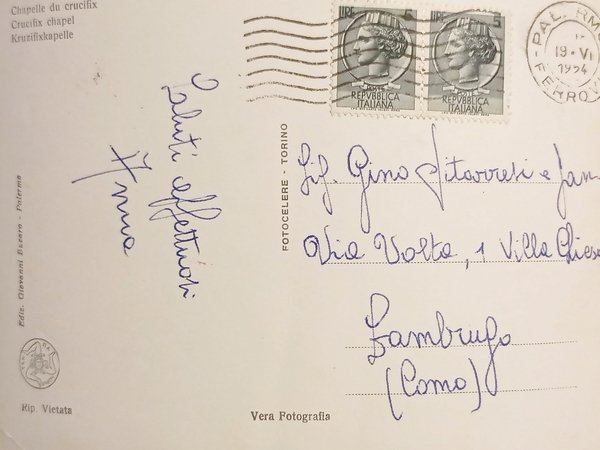 Chapelle du crucifix
Crucifix chapel
Kruzifixkapelle
LIRE 5
POSTE
REPVBBLICA
ITALIANA
LIRE 5
POSTE
REPVBBLICA
ITALIANA
PALERMO
19·VI
1954
FERROV
Saluti affettuosi
Anna
Ediz. Giovanni - Palermo
Rip. Vietata
Vera Fotografia
FOTOCELERE - TORINO
Sig. Gino Sitarresi e Fam
Via Volta, 1 Villa Chiesa
Lambrugo
(Como)